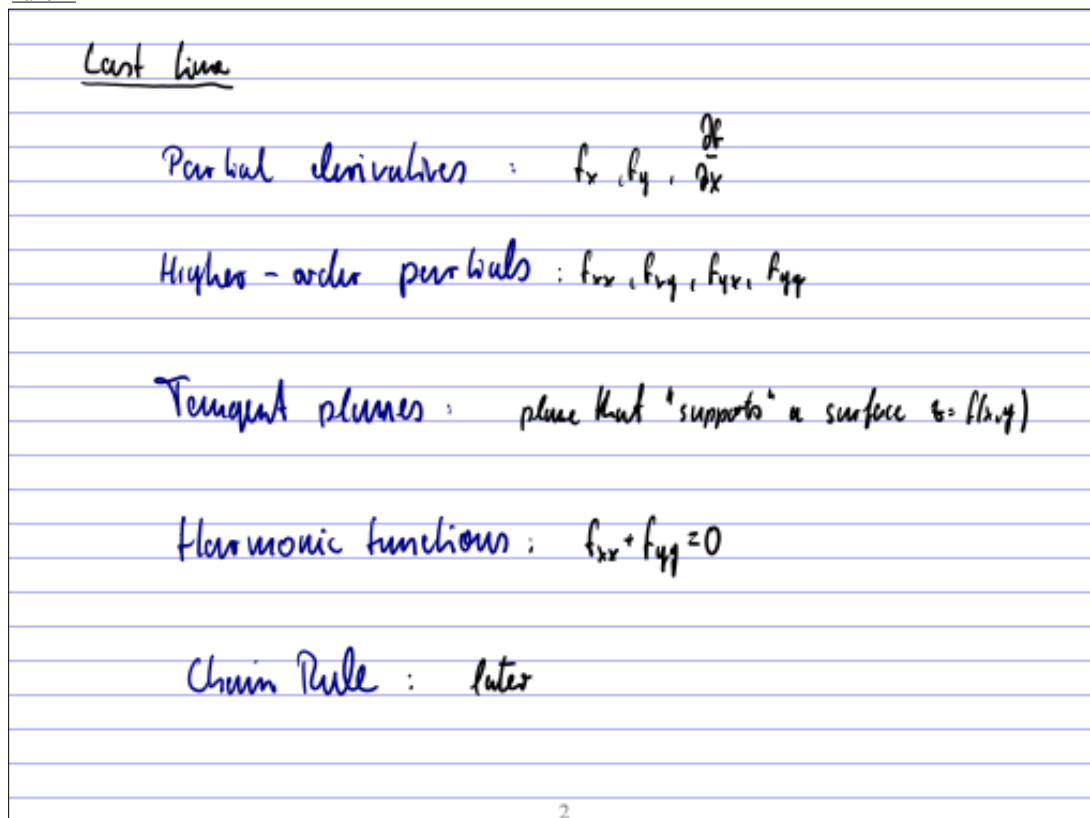 Last time
Partial derivatives : fx , fy , ∂f/∂x
Higher-order partials : fxx , fxy , fyx , fyy
Tangent planes : plane that "supports" a surface z = f(x,y)
Harmonic functions : fxx + fyy = 0
Chain Rule : later
2